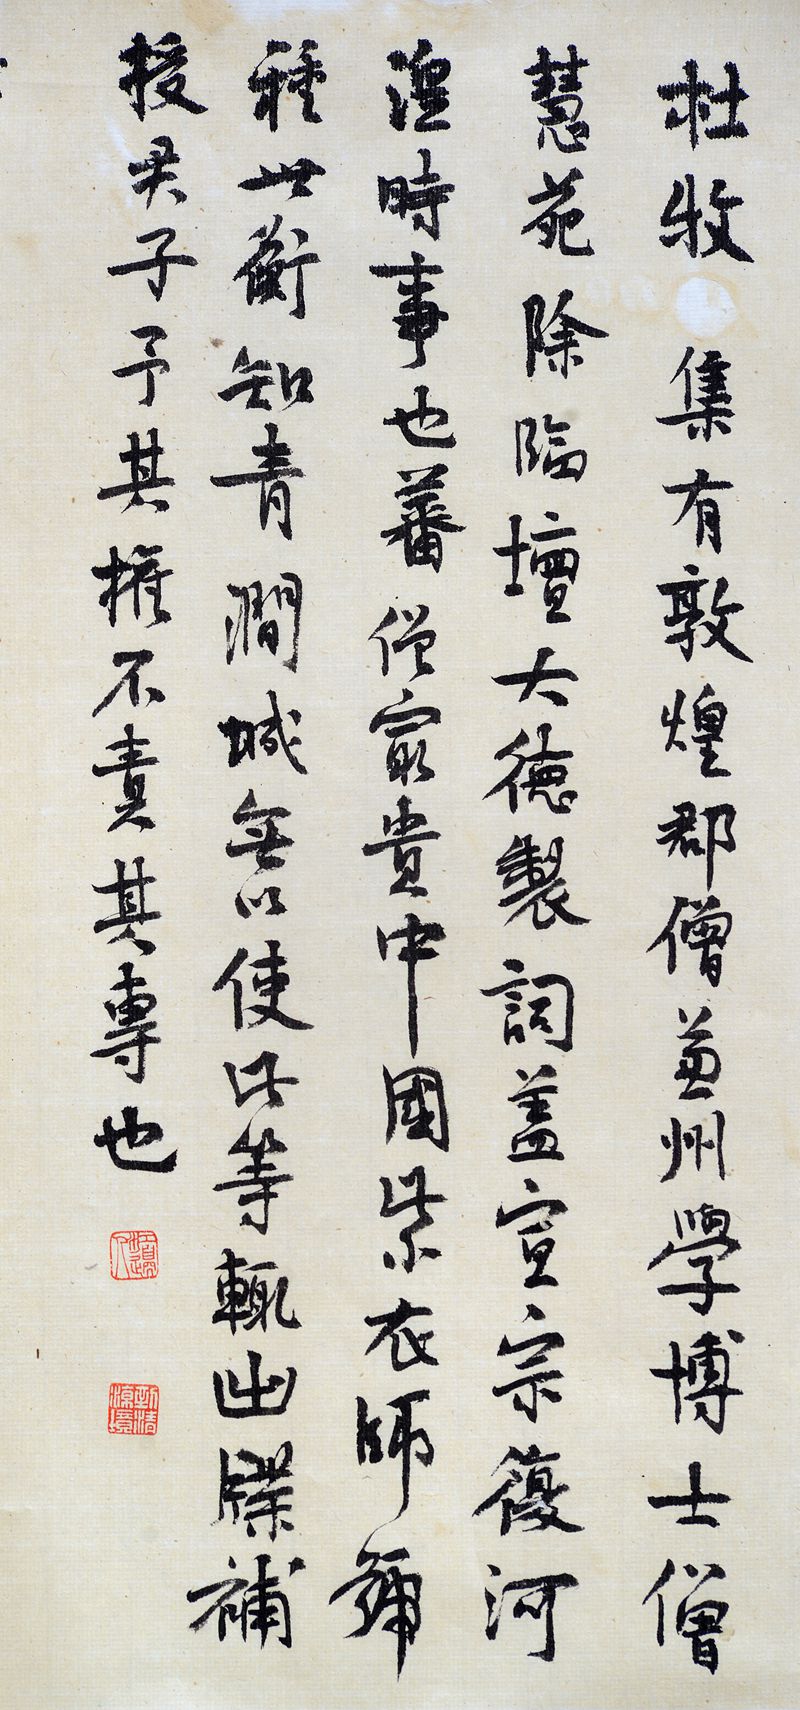 杜牧集有敦煌郡僧兼州學博士僧
慧苑除臨壇大德製詞蓋宣宗復河
湟時事也蕃僧最貴中國紫衣師號
種世衡知青澗城無以使此等輒出牒補
授君子予其權不責其專也